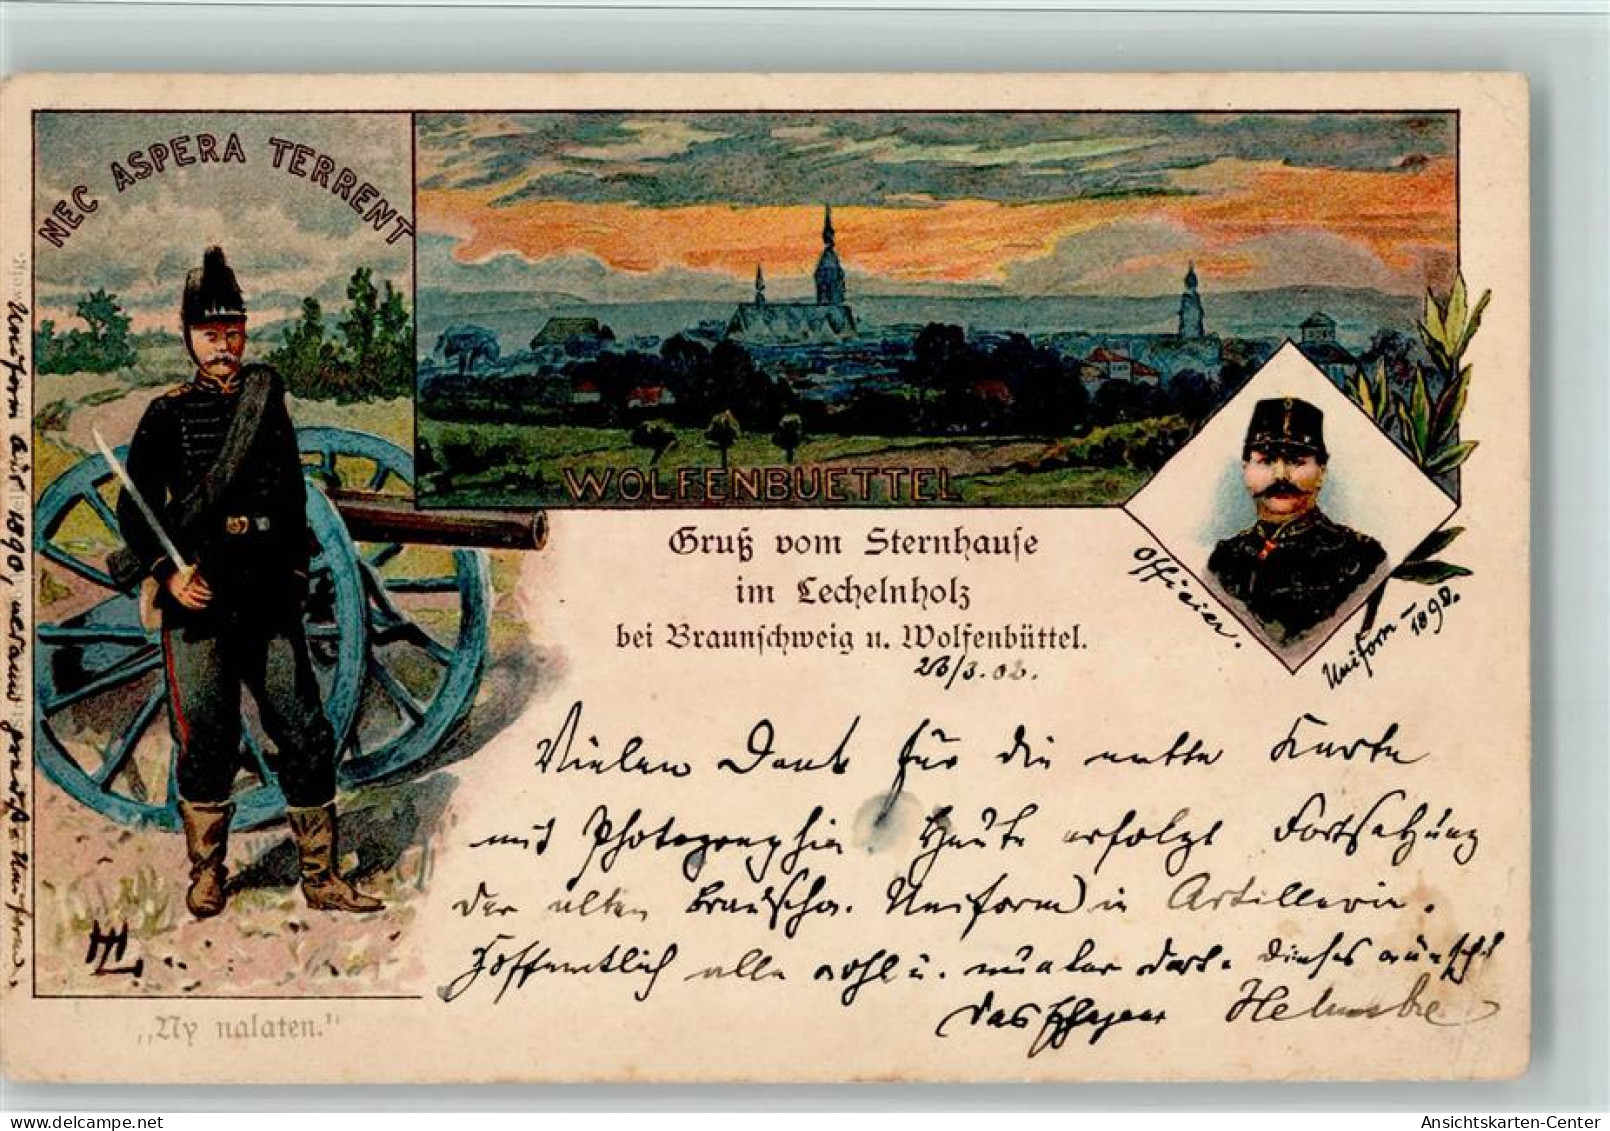 NEC ASPERA TERRENT
WOLFENBUETTEL
Gruß vom Sternhause
im Lechelnholz
bei Braunschweig u. Wolfenbüttel.
Officier.
Uniform 1898.
Vielen Dank für die nette Karte
mit Photographie. Heute erfolgt Fortsetzung
der alten Braunschw. Uniform in Artillerie.
Hoffentlich alle wohl u. munter dort. Dieses wünscht
das
Uniform Art 1890,
„Ny nalaten."
Ansichtskarten-Center